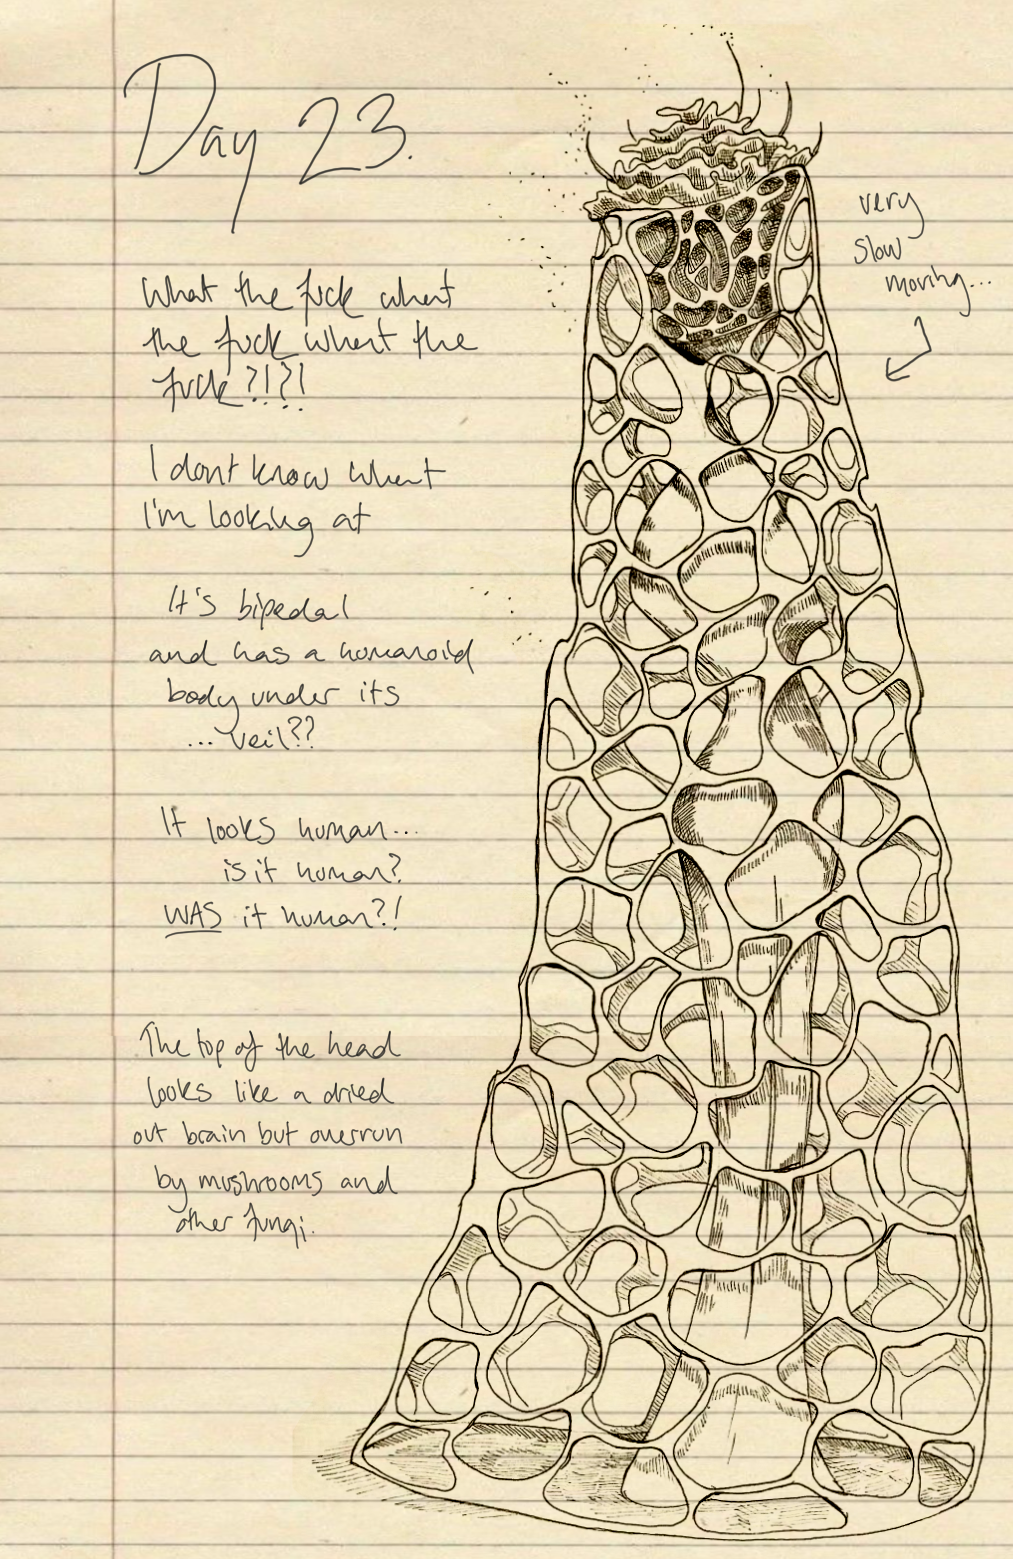 Day 23.
very
slow
moving...
What the fuck what
the fuck what the
fuck?!?!
I dont know what
I'm looking at
It's bipedal
and has a humanoid
body under its
... veil??
It looks human...
is it human?
WAS it human?!
The top of the head
looks like a dried
out brain but overrun
by mushrooms and
other fungi.